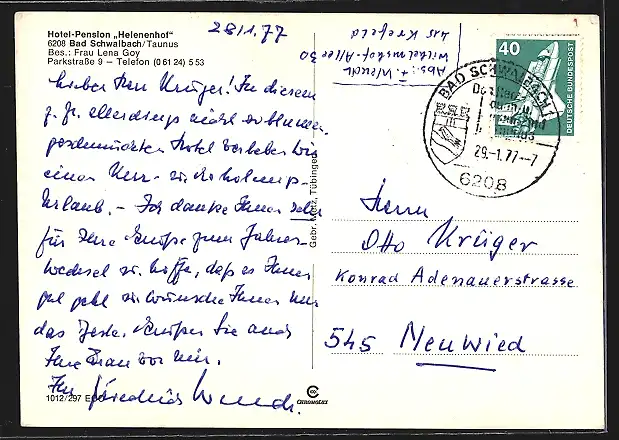 Hotel-Pension „Helenenhof"
6208 Bad Schwalbach/Taunus
Bes.: Frau Lena Goy
Parkstraße 9 – Telefon (0 61 24) 5 53
28.1.77
Abs.: F. Wendt
Wilhelmshof-Allee 30
415 Krefeld
40
DEUTSCHE BUNDESPOST
BAD SCHWALBACH 1
29.-1.77-7
6208
Lieber Herr Krüger! In diesem
z. Zt. allerdings nicht so blumen
geschmückten Hotel verleben wir
einen Kur- u. Erholungs-
Urlaub. – Ich danke Ihnen sehr
für Ihre Grüße zum Jahres-
wechsel u. hoffe, daß es Ihnen
gut geht u. wünsche Ihnen nur
das Beste. Grüßen Sie auch
Ihre Frau von mir.
Ihr Friedrich Wendt.
Gebr. Metz, Tübingen
Herrn
Otto Krüger
Konrad Adenauerstrasse
545 Neuwied
1012/297 ECO
CHROMOLUX